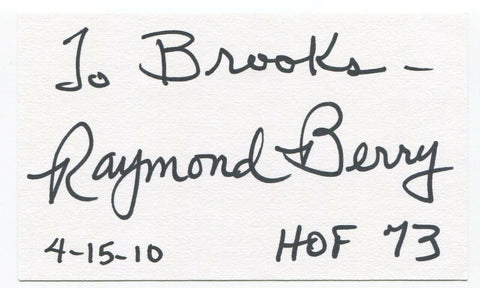 To Brooks -
Raymond Berry
4-15-10 HOF 73